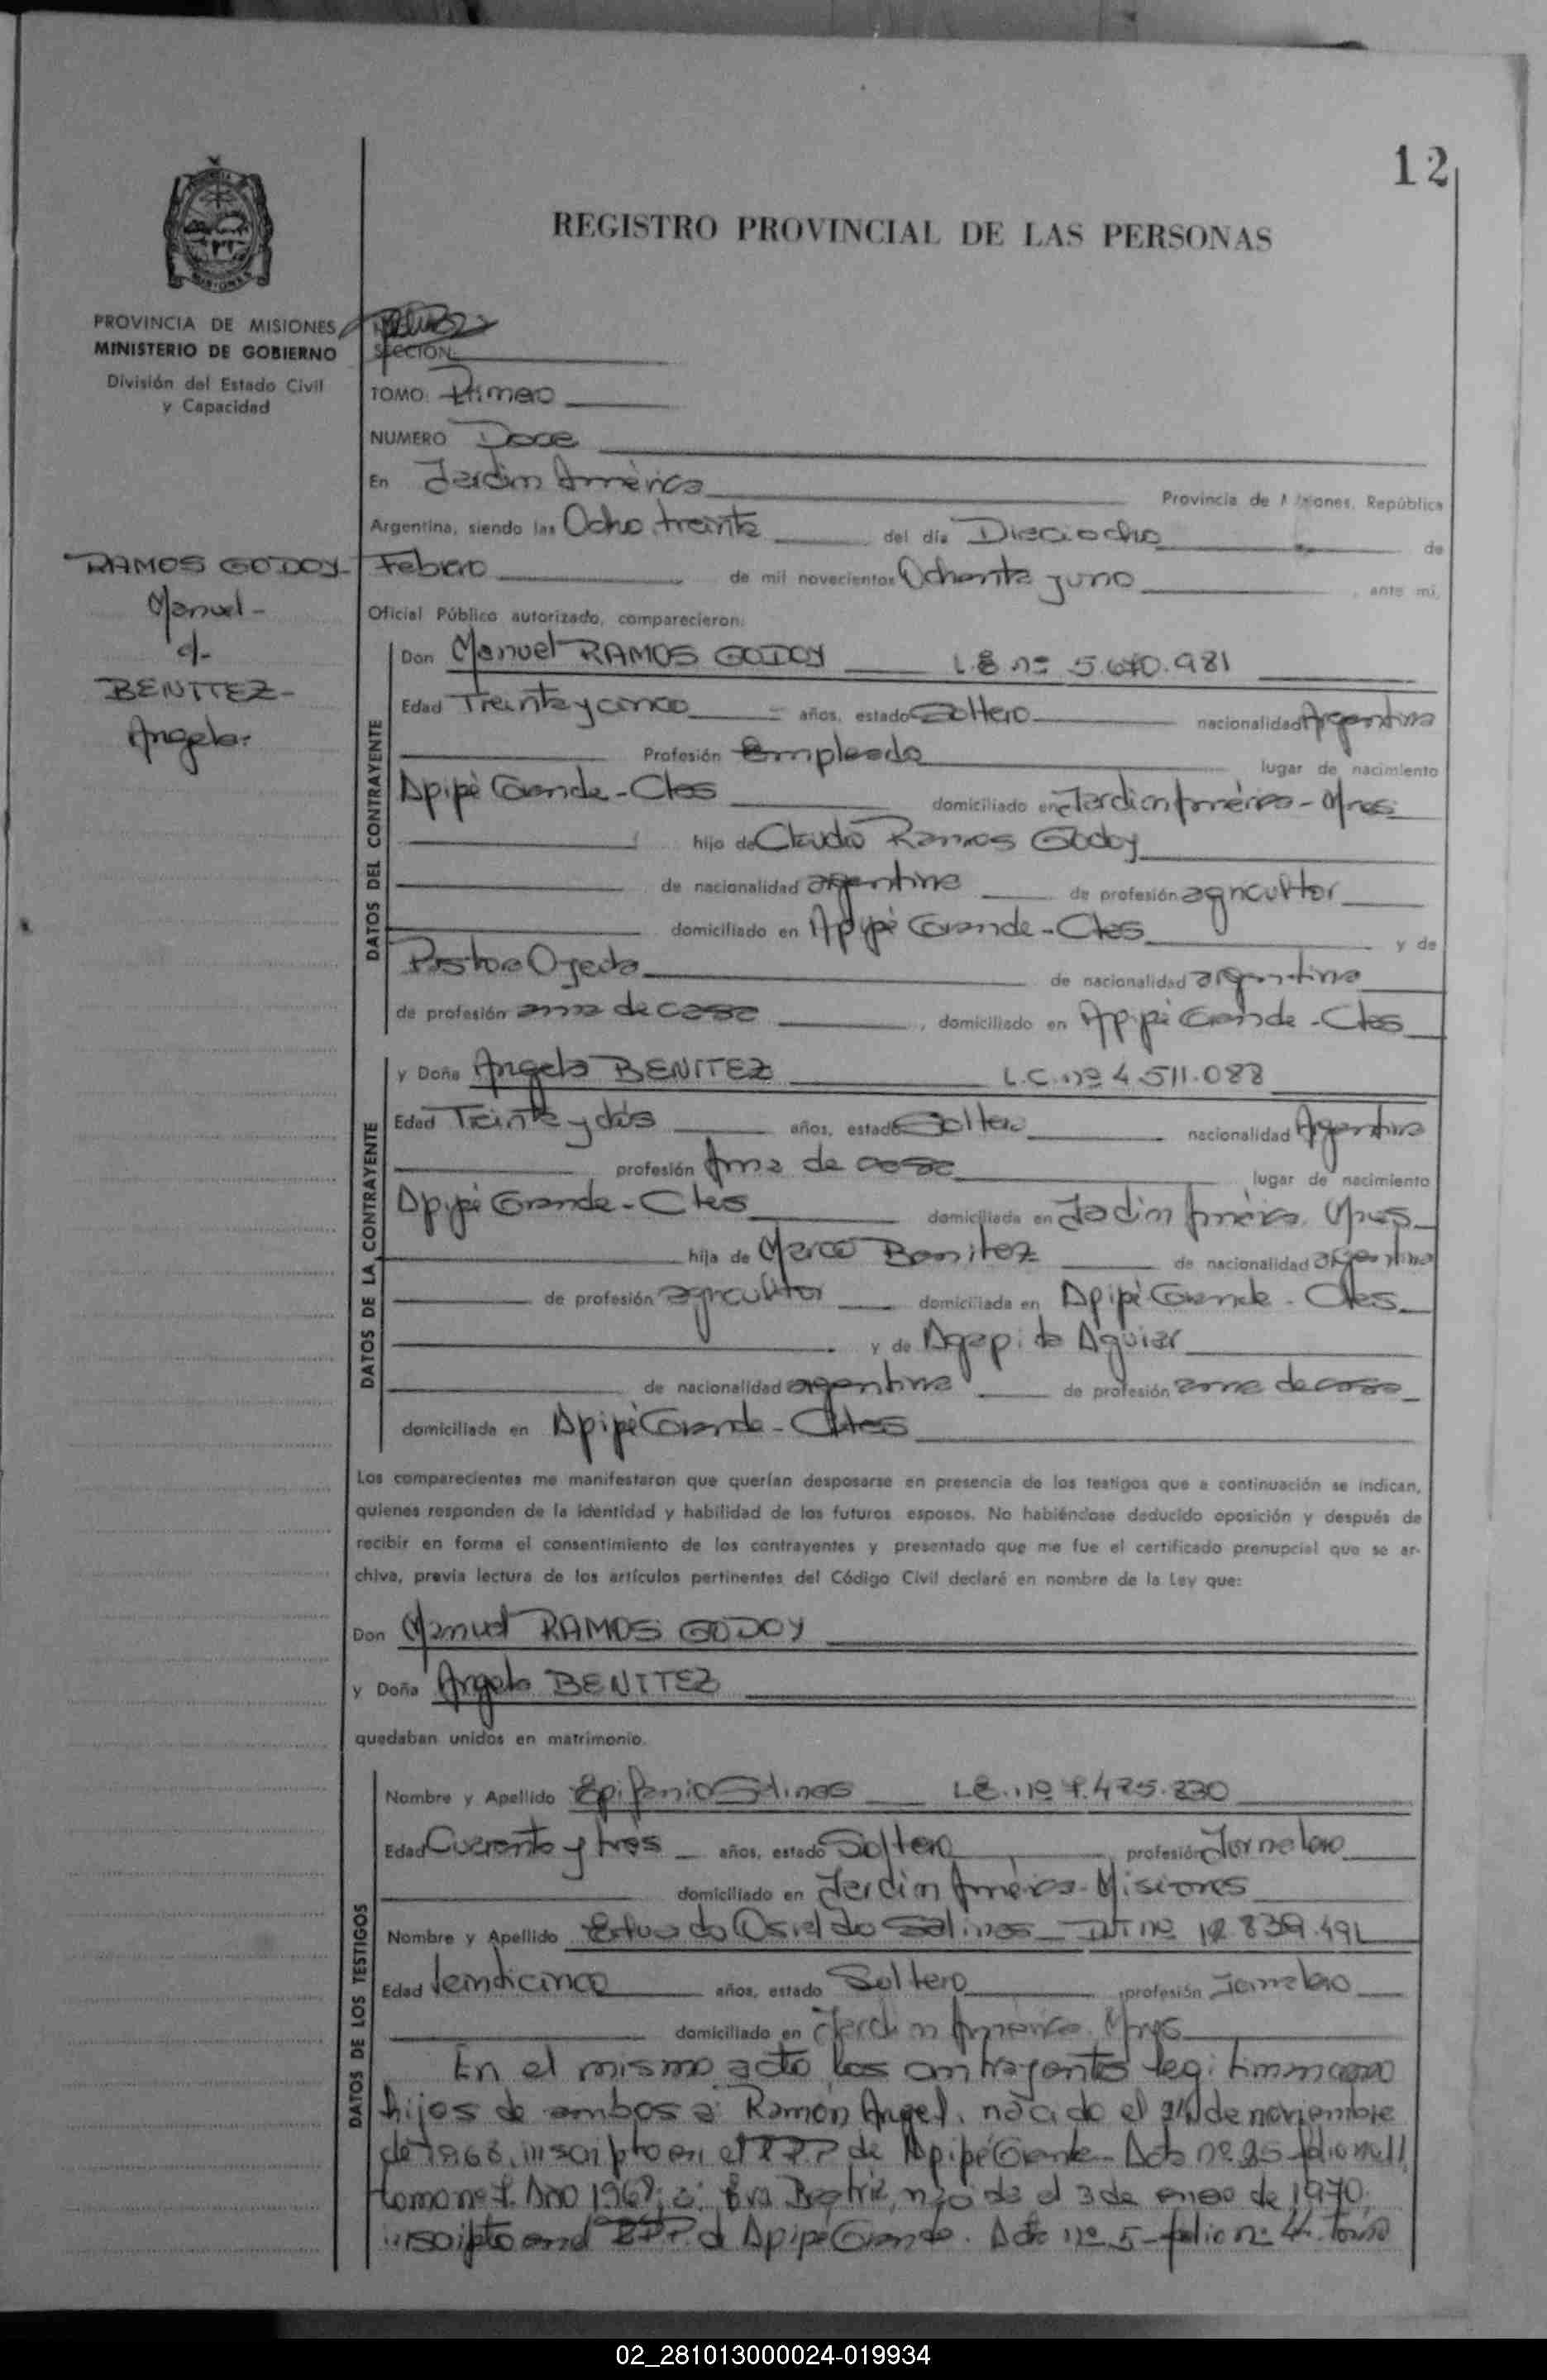 12
REGISTRO PROVINCIAL DE LAS PERSONAS
PROVINCIA DE MISIONES
MINISTERIO DE GOBIERNO
División del Estado Civil
y Capacidad
SECCION:
TOMO: Primero
NUMERO Doce
En Jardín América Provincia de Misiones, República
Argentina, siendo las Ocho treinta del día Dieciocho de
Febrero de mil novecientos Ochenta y uno, ante mí,
Oficial Público autorizado, comparecieron:
RAMOS GODOY
Manuel -
c/-
BENITEZ -
Angela.
DATOS DEL CONTRAYENTE
Don Manuel RAMOS GODOY L.E nº 5.640.981
Edad Treinta y cinco años, estado Soltero nacionalidad Argentina
Profesión Empleado lugar de nacimiento
Apipé Grande - Ctes domiciliado en Jardín América - Mnes
hijo de Claudio Ramos Godoy
de nacionalidad argentina de profesión agricultor
domiciliado en Apipé Grande - Ctes y de
Pastora Ojeda de nacionalidad argentina
de profesión ama de casa, domiciliado en Apipé Grande - Ctes
DATOS DE LA CONTRAYENTE
y Doña Angela BENITEZ L.C. nº 4.511.088
Edad Treinta y dós años, estado Soltera nacionalidad Argentina
profesión Ama de casa lugar de nacimiento
Apipé Grande - Ctes domiciliada en Jardín América, Mnes
hija de Marco Benitez de nacionalidad argentina
de profesión agricultor domiciliada en Apipé Grande - Ctes
y de Agapita Aguiar
de nacionalidad argentina de profesión ama de casa
domiciliada en Apipé Grande - Ctes
Los comparecientes me manifestaron que querían desposarse en presencia de los testigos que a continuación se indican,
quienes responden de la identidad y habilidad de los futuros esposos. No habiéndose deducido oposición y después de
recibir en forma el consentimiento de los contrayentes y presentado que me fue el certificado prenupcial que se ar-
chiva, previa lectura de los artículos pertinentes del Código Civil declaré en nombre de la Ley que:
Don Manuel RAMOS GODOY
y Doña Angela BENITEZ
quedaban unidos en matrimonio.
DATOS DE LOS TESTIGOS
Nombre y Apellido Epifanio Salinas LE. nº 7.475.230
Edad Cuarenta y tres años, estado Soltero profesión Jornalero
domiciliado en Jardín América - Misiones
Nombre y Apellido Salinas DNI nº 12.839.491
Edad Veinticinco años, estado Soltero profesión Jornalero
domiciliado en Jardín América, Mnes
En el mismo acto los contrayentes legitimaron
hijos de ambos a: Ramón Angel, nacido el 24 de noviembre
de 1968, inscripto en el R.P.P de Apipé Grande - Acta nº 85 folio nº 11
tomo nº 1. Año 1968; a: Eva Beatriz, nacida el 3 de enero de 1970,
inscripto en el R.P.P. d Apipé Grande. Acta nº 5 - folio nº 4. tomo
02_281013000024-019934